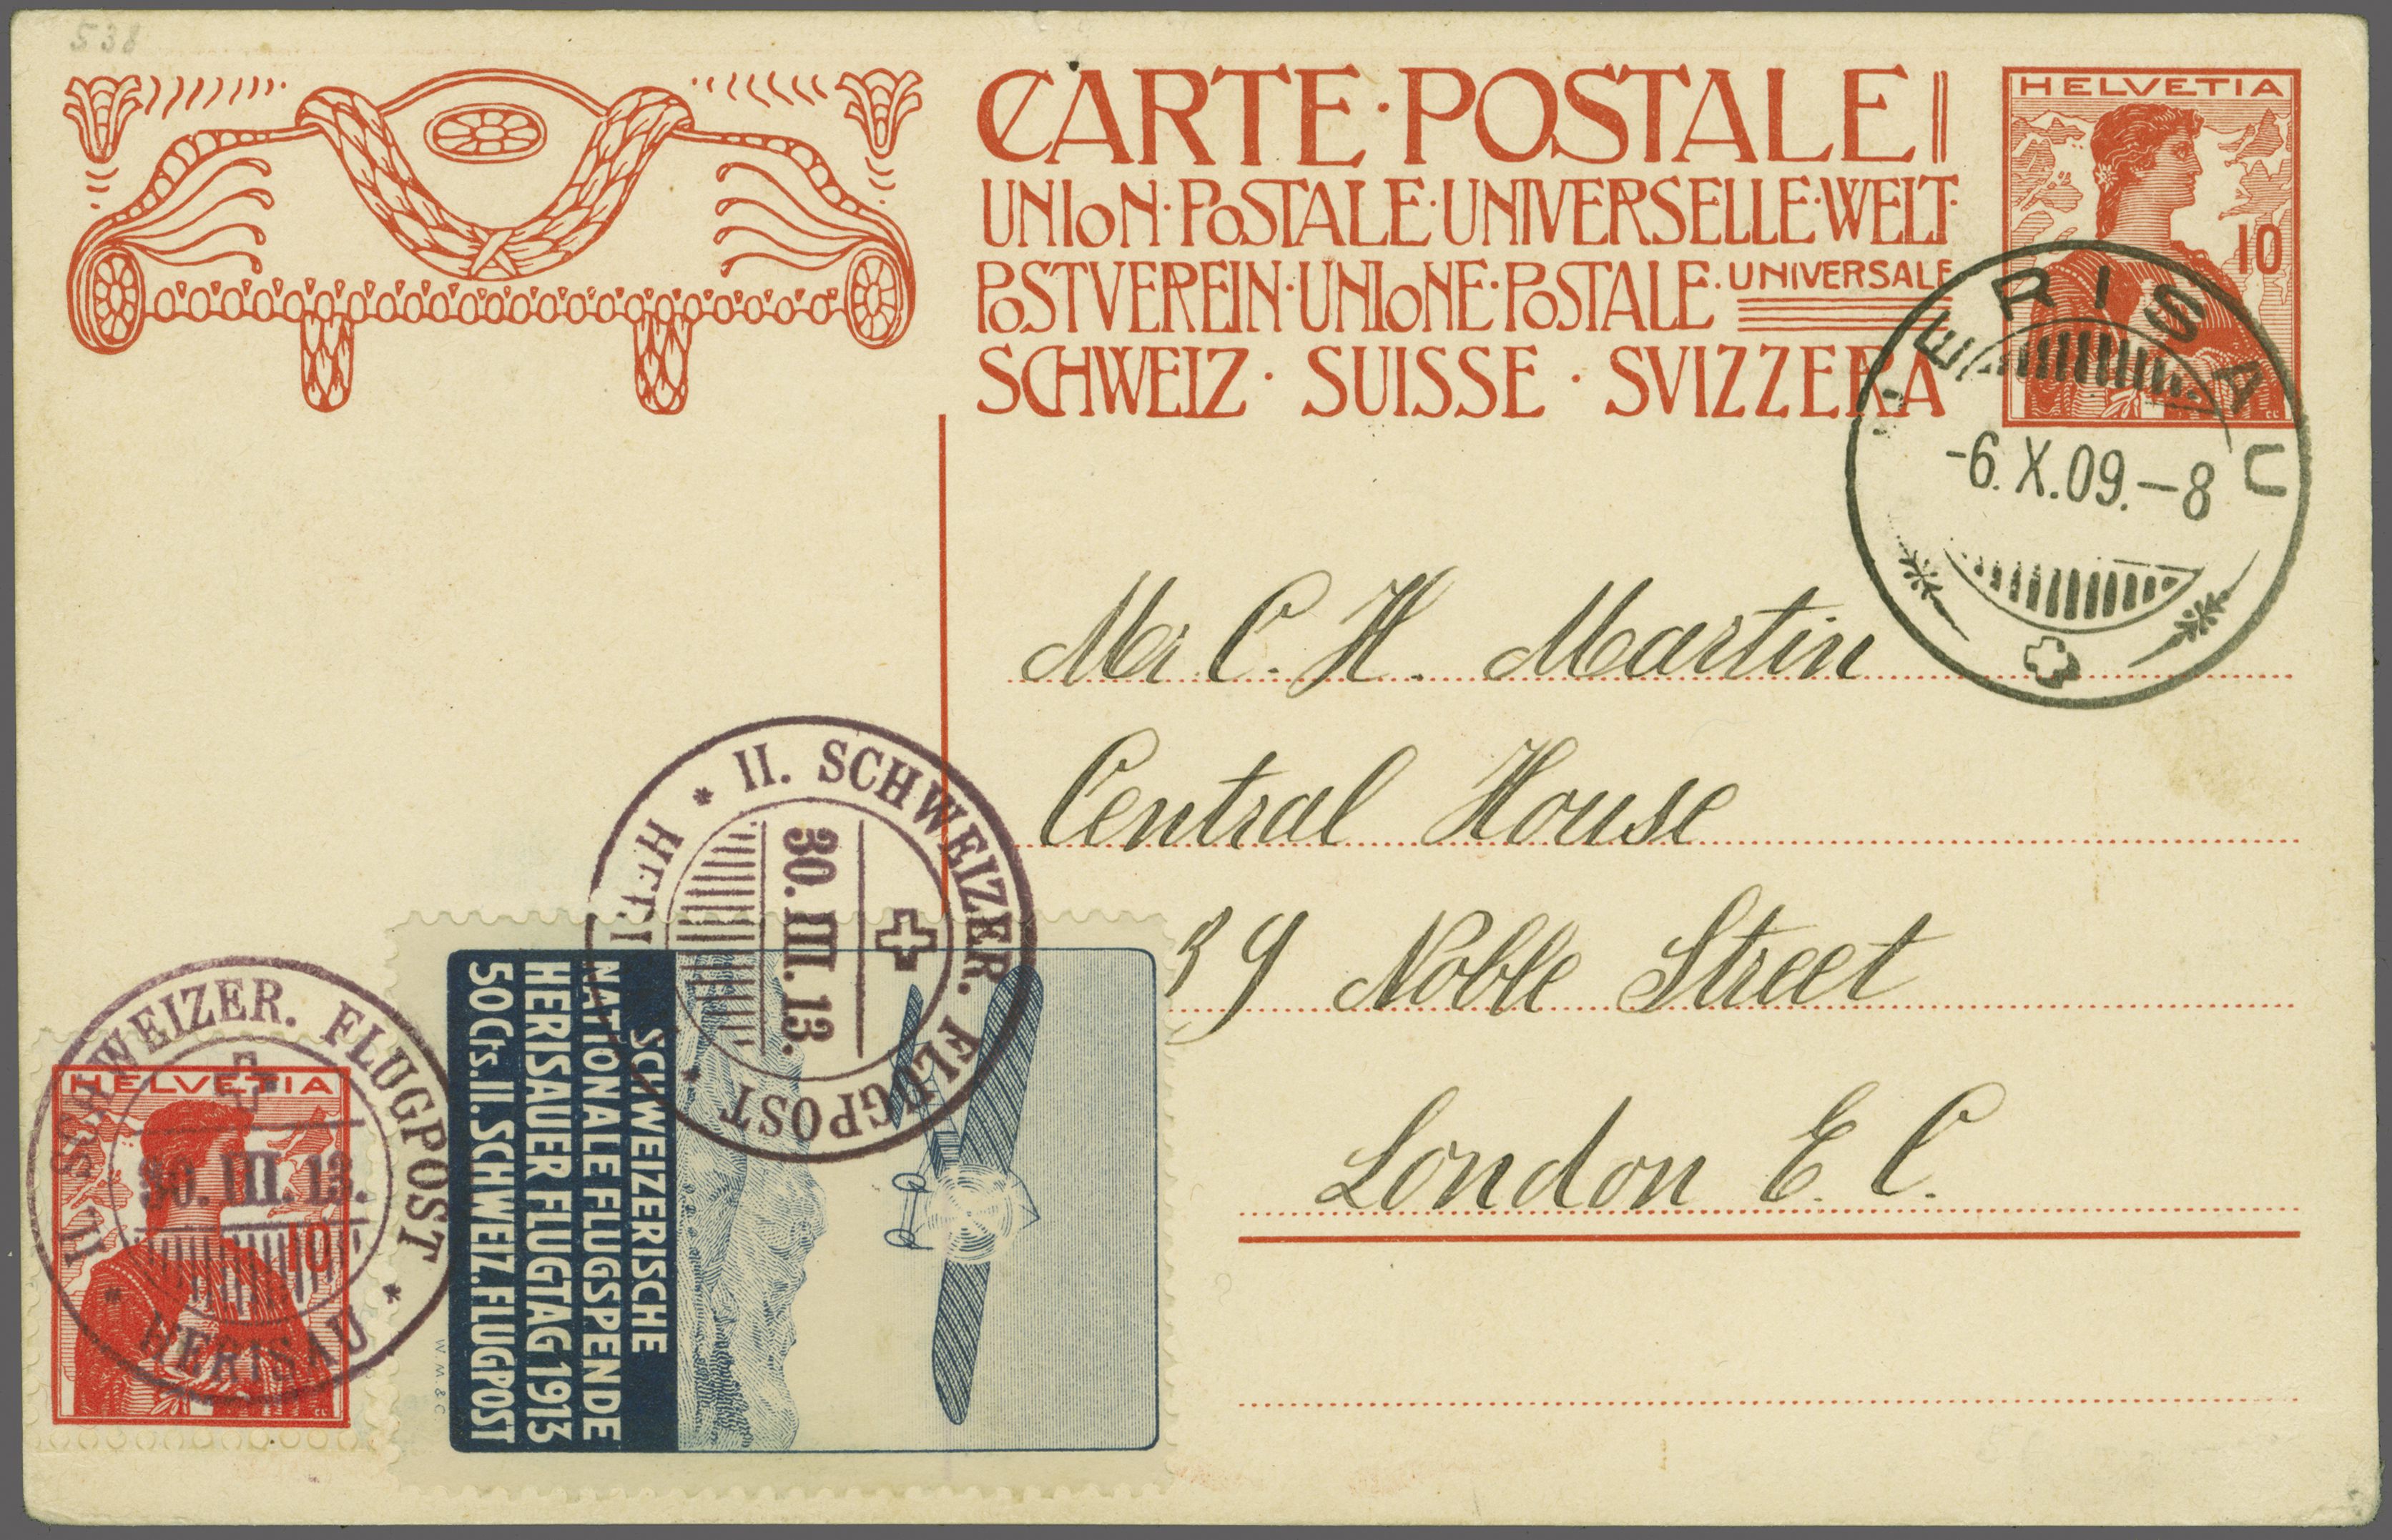 538
CARTE·POSTALE
UNION·POSTALE·UNIVERSELLE·WELT·
POSTVEREIN·UNIONE·POSTALE·UNIVERSALE
SCHWEIZ · SUISSE · SVIZZERA
HELVETIA
10
CC
HERISAU
-6.X.09.-8
Mr C. H. Martin
Central House
39 Noble Street
London E. C.
* II. SCHWEIZER. FLUGPOST *
30. III. 13.
SCHWEIZERISCHE
NATIONALE FLUGSPENDE
HERISAUER FLUGTAG 1913
50 Cts. II. SCHWEIZ. FLUGPOST
W M & C
HELVETIA
10
CC
II. SCHWEIZER. FLUGPOST
30. III. 13.
* HERISAU *